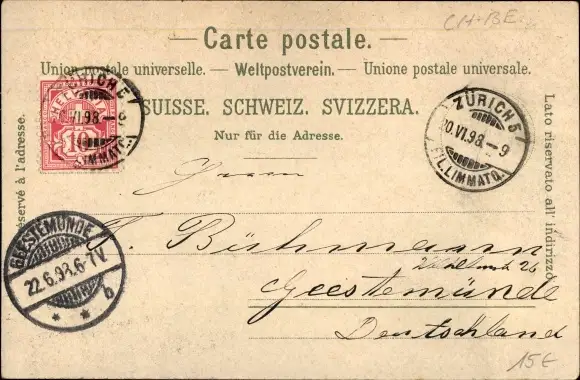 CH+BE
— Carte postale. —
Union postale universelle. — Weltpostverein. — Unione postale universale.
SUISSE. SCHWEIZ. SVIZZERA.
Nur für die Adresse.
réservé à l'adresse.
Lato riservato all' indirizzo.
HELVETIA
10
VI.98.–9
LIMMATQ.
ZÜRICH 5
20.VI.98.–9
FIL. LIMMATQ.
GEESTEMÜNDE
22.6.98.6-7V
* * b
Herrn
Bühmann
26
Geestemünde
Deutschland
15€